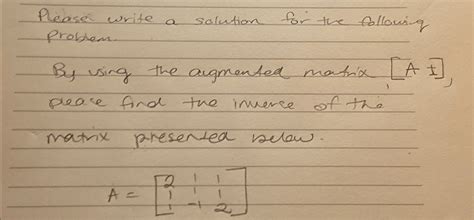 Please write a solution for the following
problem.
By using the augmented matrix, [A I],
please find the inverse of the
matrix presented below.
A = [2 1 1
1 1 1
1 -1 2]